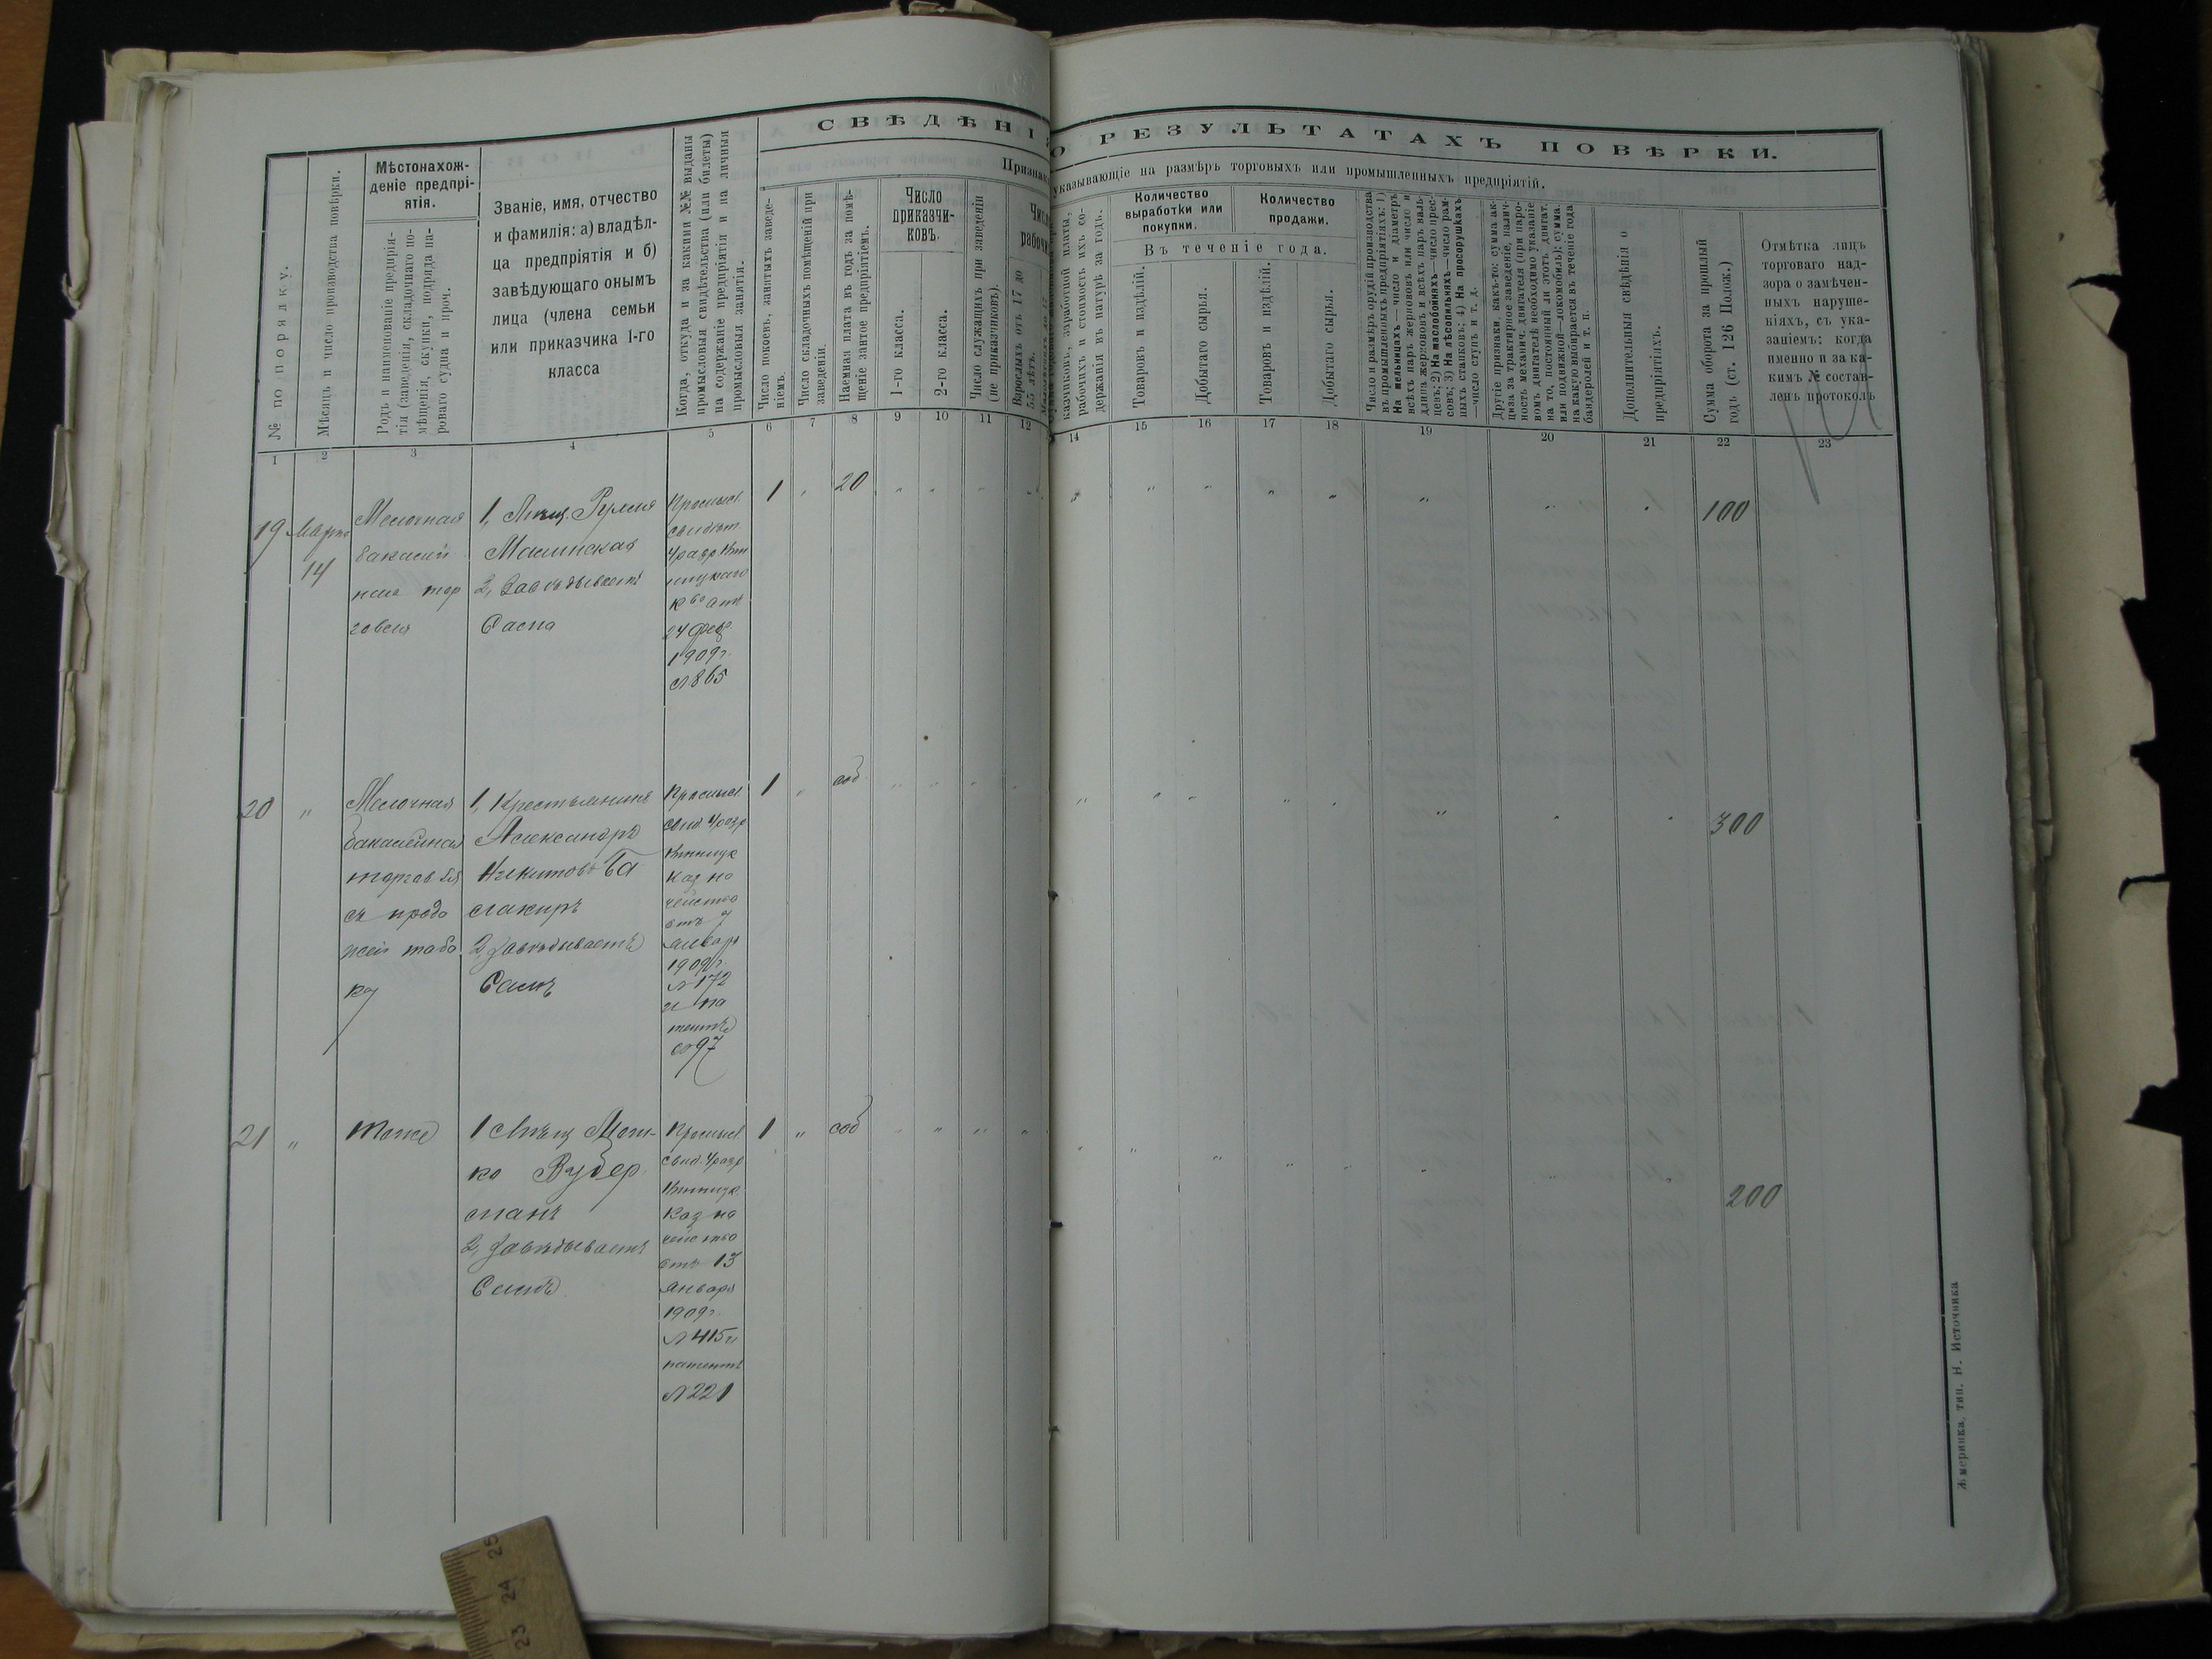 СВѢДѢНІЯ О РЕЗУЛЬТАТАХЪ ПОВѢРКИ.
указывающіе на размѣръ торговыхъ или промышленныхъ предпріятій.
№ по порядку.
Мѣсяцъ и число производства повѣрки.
Мѣстонахож-
деніе предпрі-
ятія.
Родъ и наименованіе предпрія-
тія (заведенія, складочнаго по-
мѣщенія, скупки, подряда па-
роваго судна и проч.
Званіе, имя, отчество
и фамилія: а) владѣл-
ца предпріятія и б)
завѣдующаго онымъ
лица (члена семьи
или приказчика 1-го
класса
Когда, откуда и за какими №№ выданы
промысловыя свидѣтельства (или билеты)
на содержаніе предпріятія и на личныя
промысловыя занятія.
Число покоевъ, занятыхъ заведе-
ніемъ.
Число складочныхъ помѣщеній при
заведеніи.
Наемная плата въ годъ за помѣ-
щеніе занятое предпріятіемъ.
Число
приказчи-
ковъ.
1-го класса.
2-го класса.
Число служащихъ при заведеніи
(не приказчиковъ).
Взрослыхъ отъ 17 до
55 лѣтъ.
казчиковъ, заработной платы,
рабочихъ и стоимость ихъ со-
держанія въ натурѣ за годъ.
Количество
выработки или
покупки.
Количество
продажи.
Въ теченіе года.
Товаровъ и издѣлій.
Добытаго сырья.
Товаровъ и издѣлій.
Добытаго сырья.
Число и размѣръ орудій производства
въ промышленныхъ предпріятіяхъ: 1)
На мельницахъ — число и діаметръ
всѣхъ паръ жернововъ или число и
длина жерновъ и всѣхъ паръ валь-
цевъ; 2) На маслобойняхъ—число прес-
совъ; 3) На лѣсопильняхъ—число рам-
ныхъ станковъ; 4) На просорушкахъ
—число ступъ и т. д.
Другіе признаки, какъ-то: сумма ак-
циза за трактирное заведеніе, налич-
ность механич. двигателя (при паро-
вомъ двигателѣ необходимо указаніе
на то, постоянный ли этотъ двигат.
или подвижной—локомобиль); сумма,
на какую выбирается въ теченіе года
бандеролей и т. п.
Дополнительныя свѣдѣнія о
предпріятіяхъ.
Сумма оборота за прошлый
годъ (ст. 126 Полож.)
Отмѣтка лицъ
торговаго над-
зора о замѣчен-
ныхъ наруше-
ніяхъ, съ ука-
заніемъ: когда
именно и за ка-
кимъ № состав-
ленъ протоколъ
1 2 3 4 5 6 7 8 9 10 11 12 14 15 16 17 18 19 20 21 22 23
19 Марта
14
Мелочная
бакалей
ная тор
говля
1,
2, Завѣдываетъ
Сама
Промысл.
свидѣт.
4 разр
к во отъ
24 фев
1909 г.
№ 865
1 20 100
20 „
Мелочная
бакалейная
торговля
съ прода
жей таба
ку
1, Крестьянинъ
Александръ
Никитовъ
2, Завѣдываетъ
Самъ
Промысл.
свид. 4 разр
Винницк
каз на
чейства
отъ 7
января
1909 г.
№ 172
и па
тентъ
№ 97
1 соб 300
21 „
Тоже
1 Мѣщ
2, Завѣдываетъ
Самъ
Промысл.
свид. 4 разр
Винницк.
Каз на
чейства
отъ 13
января
1909 г.
№ 415 и
патентъ
№ 221
1 „ соб 200
Жмеринка, тип. Н. Источника